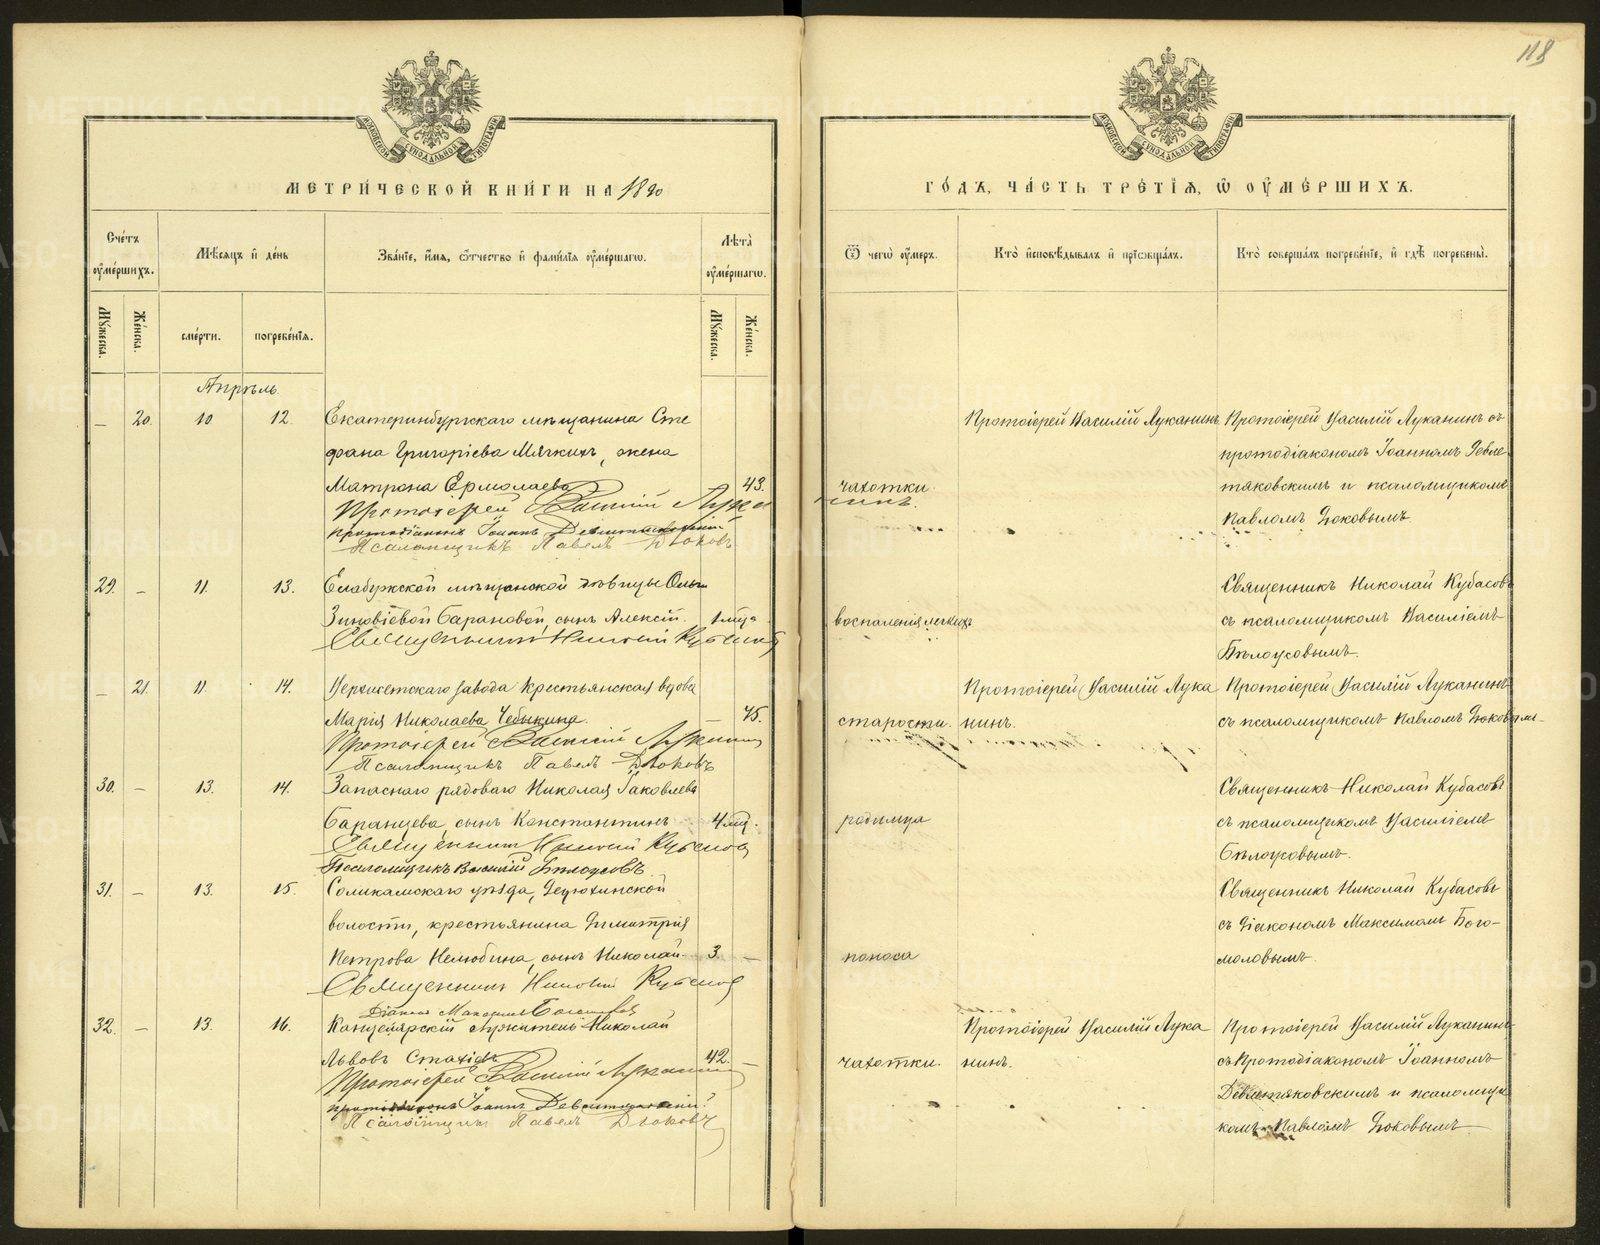 118
МЕТРИЧЕСКОЙ КНИГИ НА 1890
ГОДЪ, ЧАСТЬ ТРЕТІЯ, Ѿ ОУМЕРШИХЪ.
Счетъ оумершихъ.
Мѣсяцъ и день
Званіе, имя, ѿтчество и фамилія оумершагѡ.
Лѣта оумершагѡ.
Ѿ чегѡ оумеръ.
Кто исповѣдывалъ и пріобщалъ.
Кто совершалъ погребеніе, и гдѣ погребены.
Мужеска.
Женска.
смерти.
погребенія.
Мужеска.
Женска.
Апрѣль.
— 20. 10 12. Екатеринбургскаго мѣщанина Сте
фана Григоріева Мягкихъ, жена
Матрона Ермолаева 43.
Протоіерей Василій Лукан
протодіаконъ Іоаннъ Девлетяковскій
Псаломщикъ Павелъ Дюковъ
чахотки.
Протоіерей Василій Луканинъ
Протоіерей Василій Луканинъ съ
протодіакономъ Іоанномъ Девле
тяковскимъ и псаломщикомъ
Павломъ Дюковымъ
29. — 11. 13. Елабужской мѣщанской дѣвицы Ольги
Зиновіевой Барановой, сынъ Алексій. 1 мѣс.
Священникъ Николай Кубасовъ
воспаленія легкихъ
Священникъ Николай Кубасовъ
съ псаломщикомъ Василіемъ
Бѣлоусовымъ.
— 21. 11. 14. Верхисетскаго завода крестьянская вдова
Марія Николаева Чебыкина. — 75.
Протоіерей Василій Луканинъ
Псаломщикъ Павелъ Дюковъ
старости.
Протоіерей Василій Лука
нинъ.
Протоіерей Василій Луканинъ
съ псаломщикомъ Павломъ Дюковымъ
30. — 13. 14. Запаснаго рядоваго Николая Іаковлева
Баранцева, сынъ Константинъ 4 мѣс.
Священникъ Николай Кубасовъ
Псаломщикъ Василій Бѣлоусовъ.
родимца
Священникъ Николай Кубасовъ
съ псаломщикомъ Василіемъ
Бѣлоусовымъ.
31. — 13. 15. Соликамскаго уѣзда, Дедюхинской
волости, крестьянина Димитрія
Петрова Нелюбина, сынъ Николай. 3. —
Священникъ Николай Кубасовъ
Діаконъ Максимъ Богомоловъ
поноса
Священникъ Николай Кубасовъ
съ діакономъ Максимомъ Бого-
моловымъ.
32. — 13. 16. Канцелярскій служитель Николай
Львовъ 42. —
Протоіерей Василій Луканинъ
протодіаконъ Іоаннъ Девлетяковскій
Псаломщикъ Павелъ Дюковъ
чахотки.
Протоіерей Василій Лука
нинъ.
Протоіерей Василій Луканинъ
съ Протодіакономъ Іоанномъ
Девлетяковскимъ и псаломщи
комъ Павломъ Дюковымъ